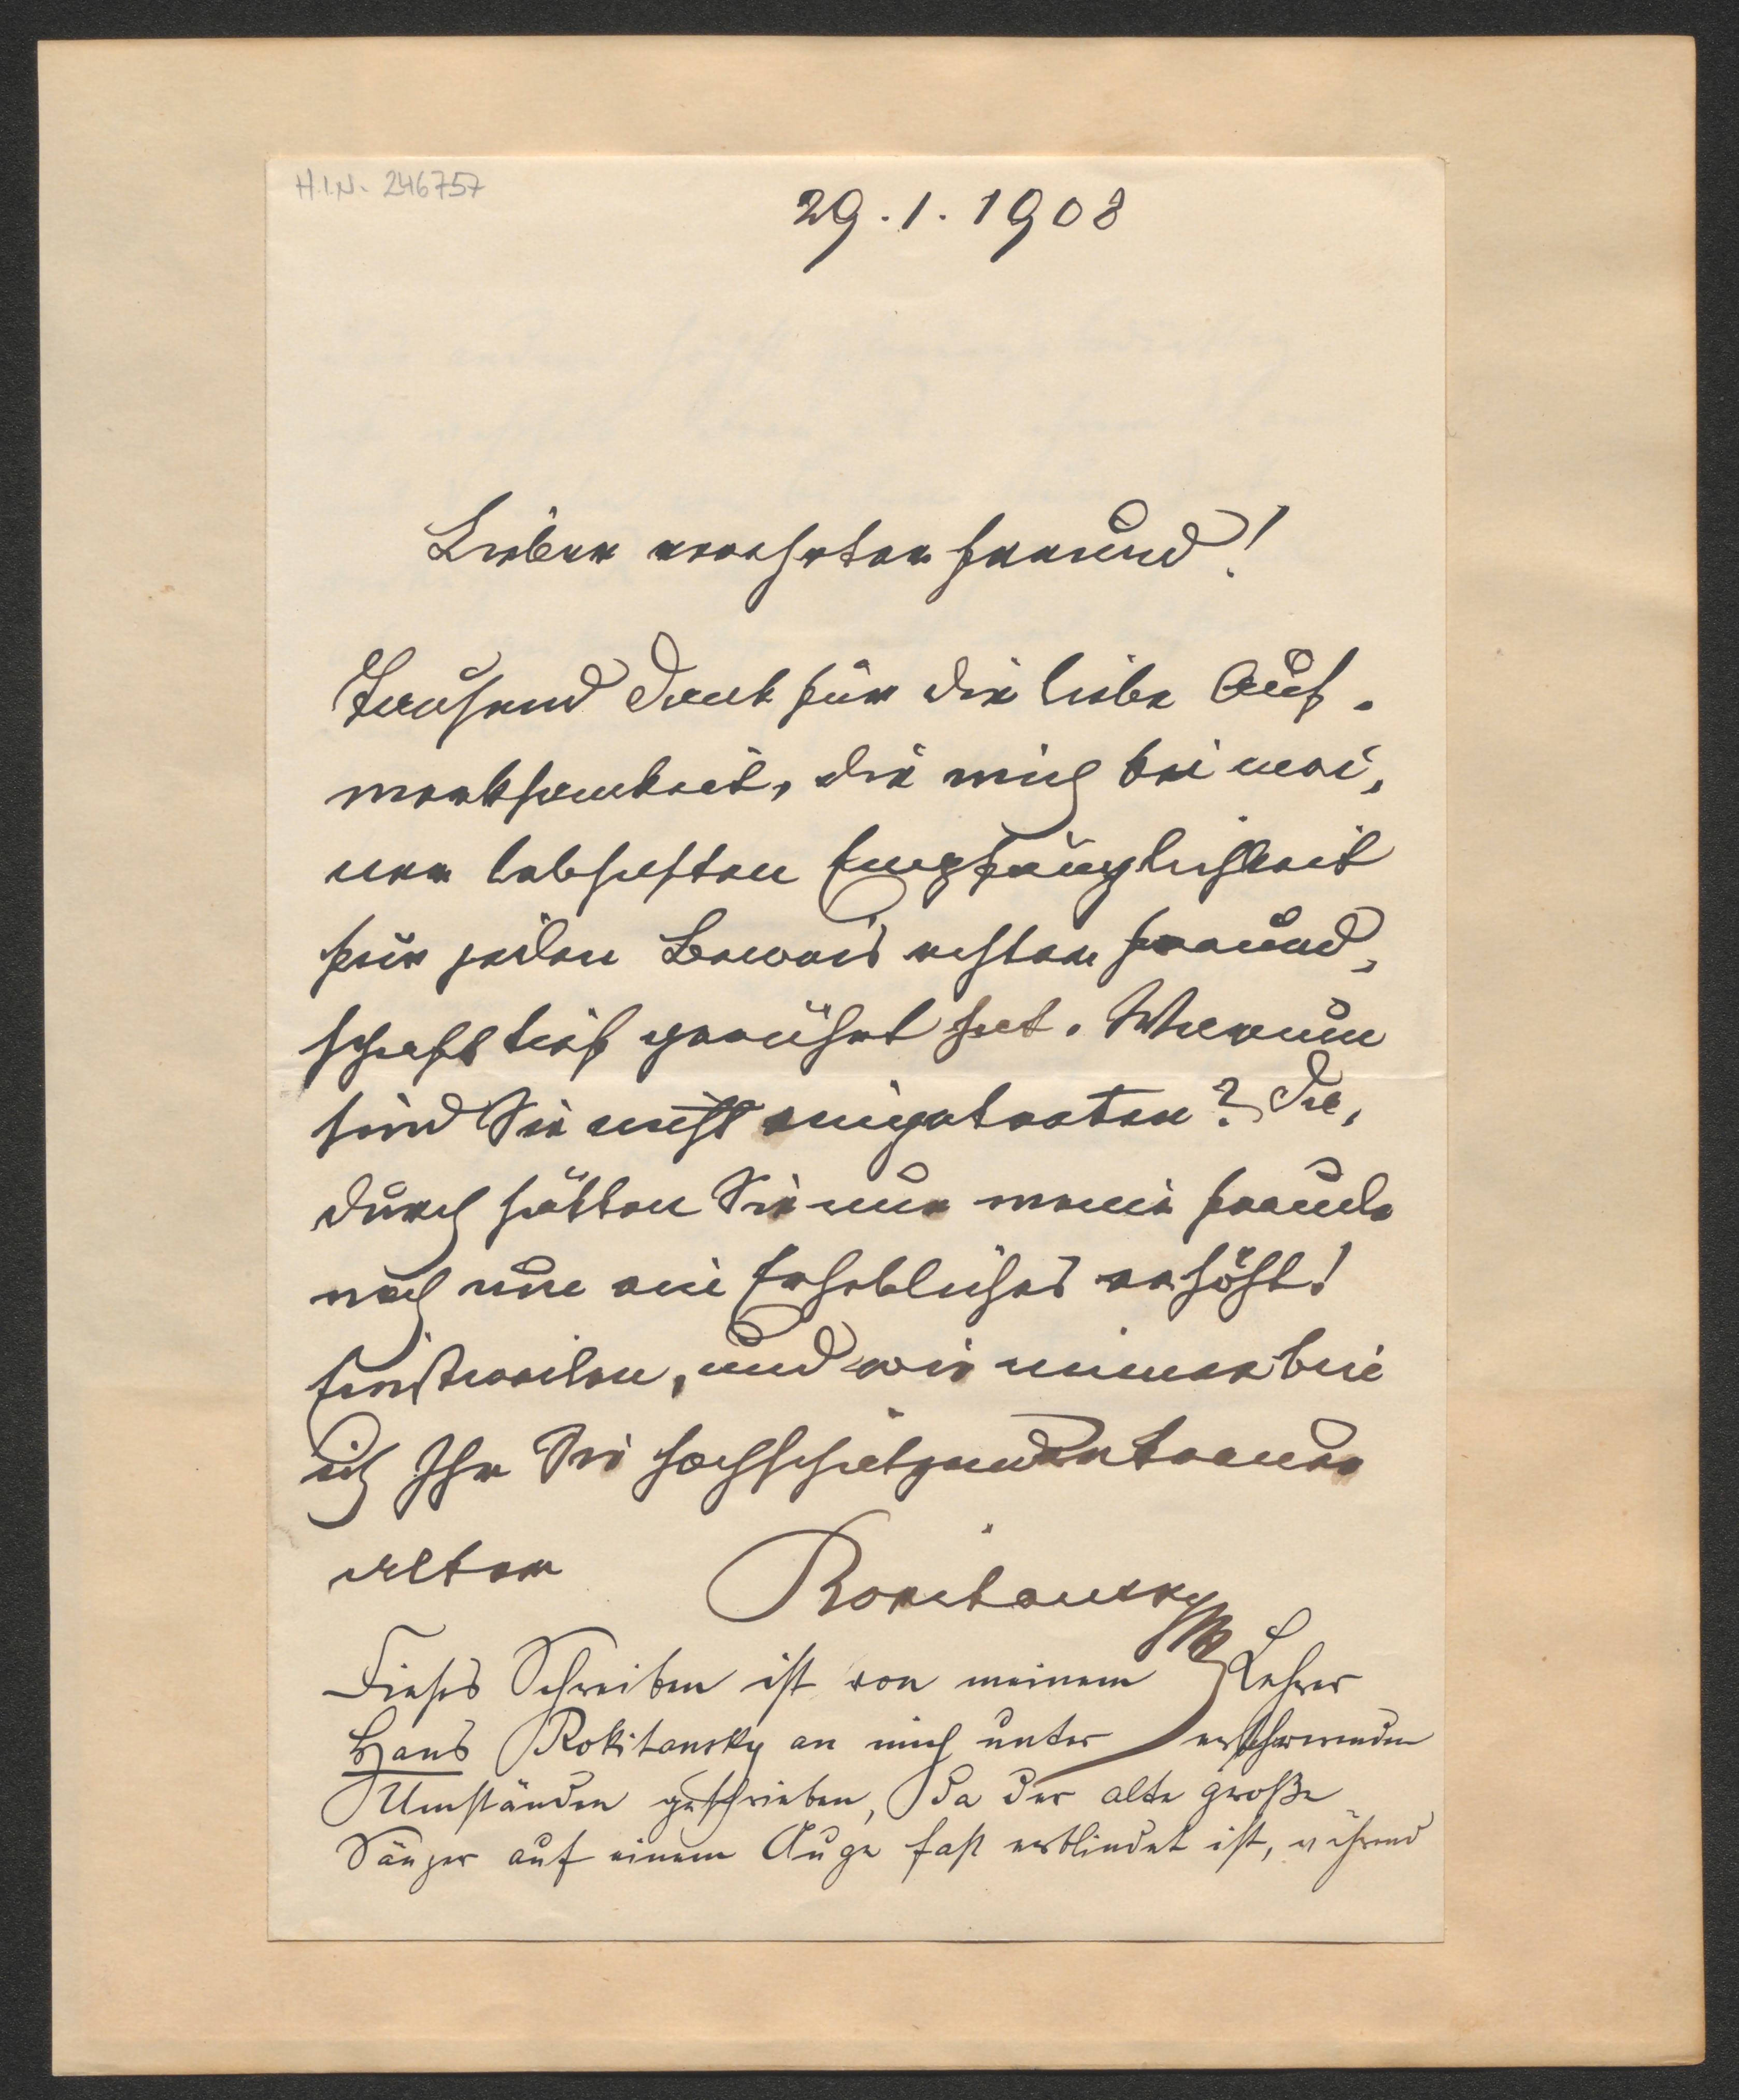 H.I.N. 246757
29.1.1908
Lieber verehrter Freund!
Tausend Dank für die liebe Auf-
merksamkeit, die mich bei mei-
ner lebhaften Empfänglichkeit
für jeden Beweis echter Freund-
schaft tief gerührt hat. Warum
sind Sie nicht eingetreten? Da-
durch hätten Sie nur meine Freude
noch um ein Erhebliches erhöht!
Einstweilen, und wie immer bin
ich Ihr Sie hochschätzender treuer
alter Rokitansky
Dieses Schreiben ist von meinem Lehrer
Hans Rokitansky an mich unter erschwerenden
Umständen geschrieben, da der alte große
Sänger auf einem Auge fast erblindet ist, während